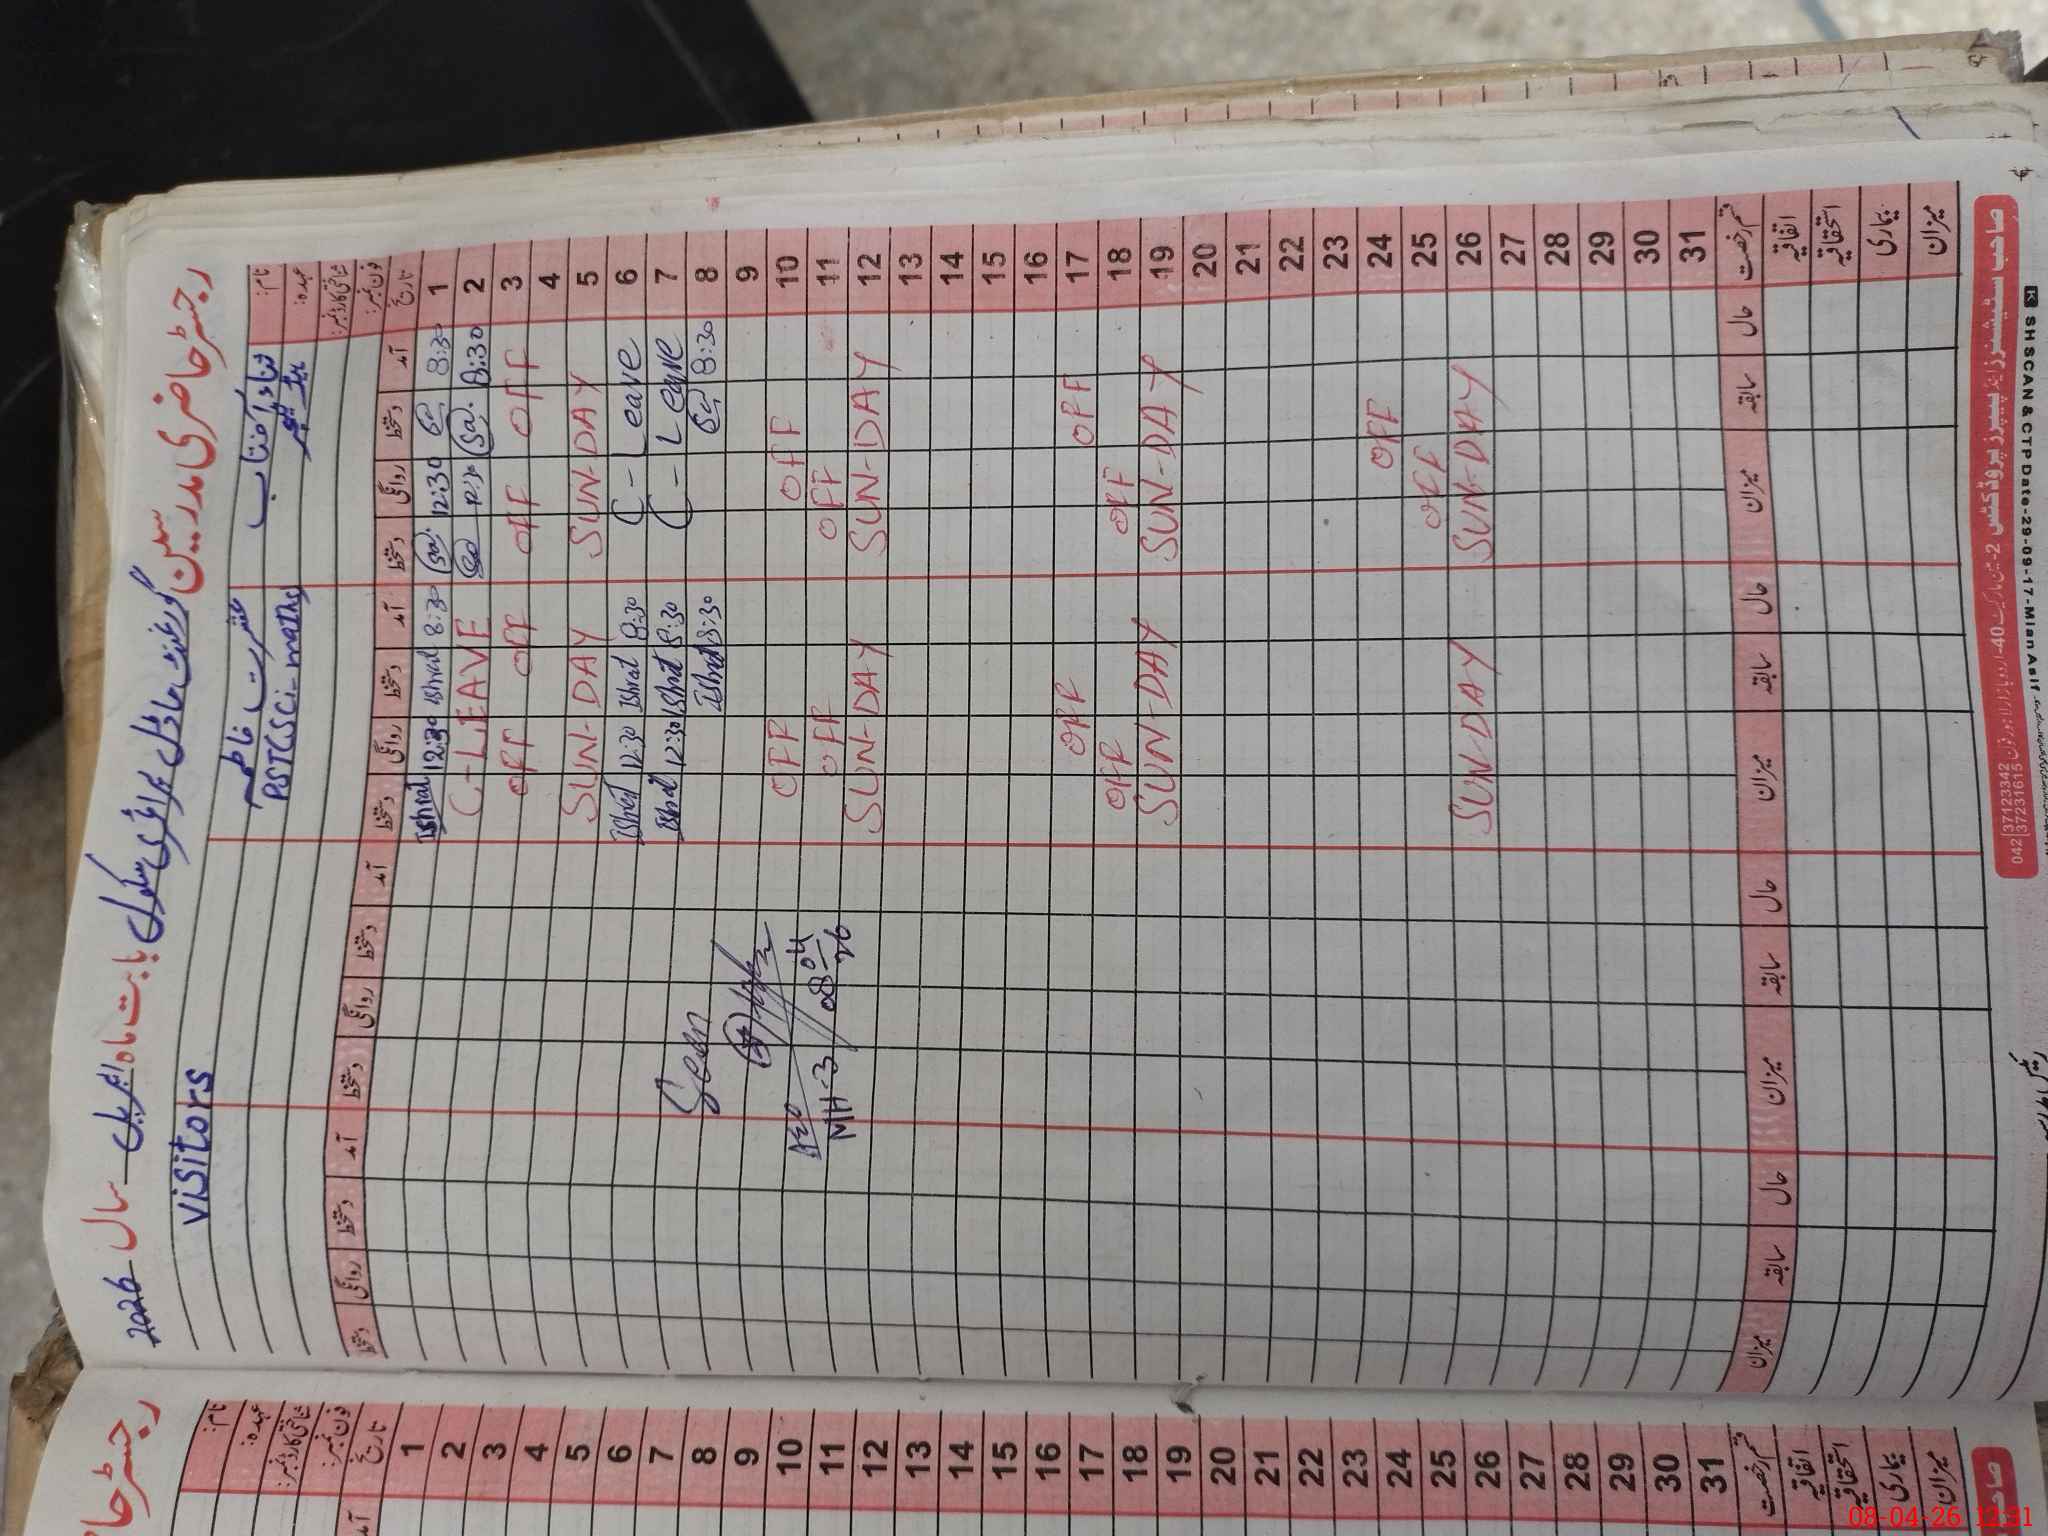 رجسٹر حاضری مدرسین گورنمنٹ ماڈل پرائمری سکول بابت ماہ اپریل سال 2026
visitors
نام: ثناء آفتاب عشرت فاطمہ
عہدہ: ہیڈ ٹیچر PST(Sci-maths
شناختی کارڈ نمبر:
فون نمبر:
تاریخ آمد دستخط روانگی دستخط آمد دستخط روانگی دستخط آمد دستخط روانگی دستخط آمد دستخط روانگی دستخط
1 8:30 12:30 8:30 Ishrat 12:30 Ishrat
2 8:30 C-LEAVE
3 OFF OFF OFF OFF
4
5 SUN-DAY SUN-DAY
6 C-Leave 8:30 Ishrat 12:30 Ishrat
7 C-Leave 8:30 Ishrat 12:30 Ishrat
8 8:30 8:30 Ishrat Seen
9
10 OFF OFF AEO
11 OFF OFF 08/04/26 MH-3
12 SUN-DAY SUN-DAY
13
14
15
16
17 OFF OFF
18 OFF OFF
19 SUN-DAY SUN-DAY
20
21
22
23
24 OFF
25 OFF
26 SUN-DAY SUN-DAY
27
28
29
30
31
قسم رخصت حال سابقہ میزان حال سابقہ میزان حال سابقہ میزان حال سابقہ میزان
اتفاقیہ
استحقاقیہ
بیماری
میزان
صاحب سٹیشنرز اینڈ پیپرز پروڈکٹس 2-مین مارکیٹ، 40-اردو بازار لاہور فون 042 37123342 37231615
K SH SCAN & CTP Date-29-09-17-Mian Asif
رجسٹر حا
نام:
عہدہ:
شناختی کارڈ نمبر:
فون نمبر:
تاریخ آمد
1
2
3
4
5
6
7
8
9
10
11
12
13
14
15
16
17
18
19
20
21
22
23
24
25
26
27
28
29
30
31
قسم رخصت
اتفاقیہ
استحقاقیہ
بیماری
میزان
08-04-26 12:31